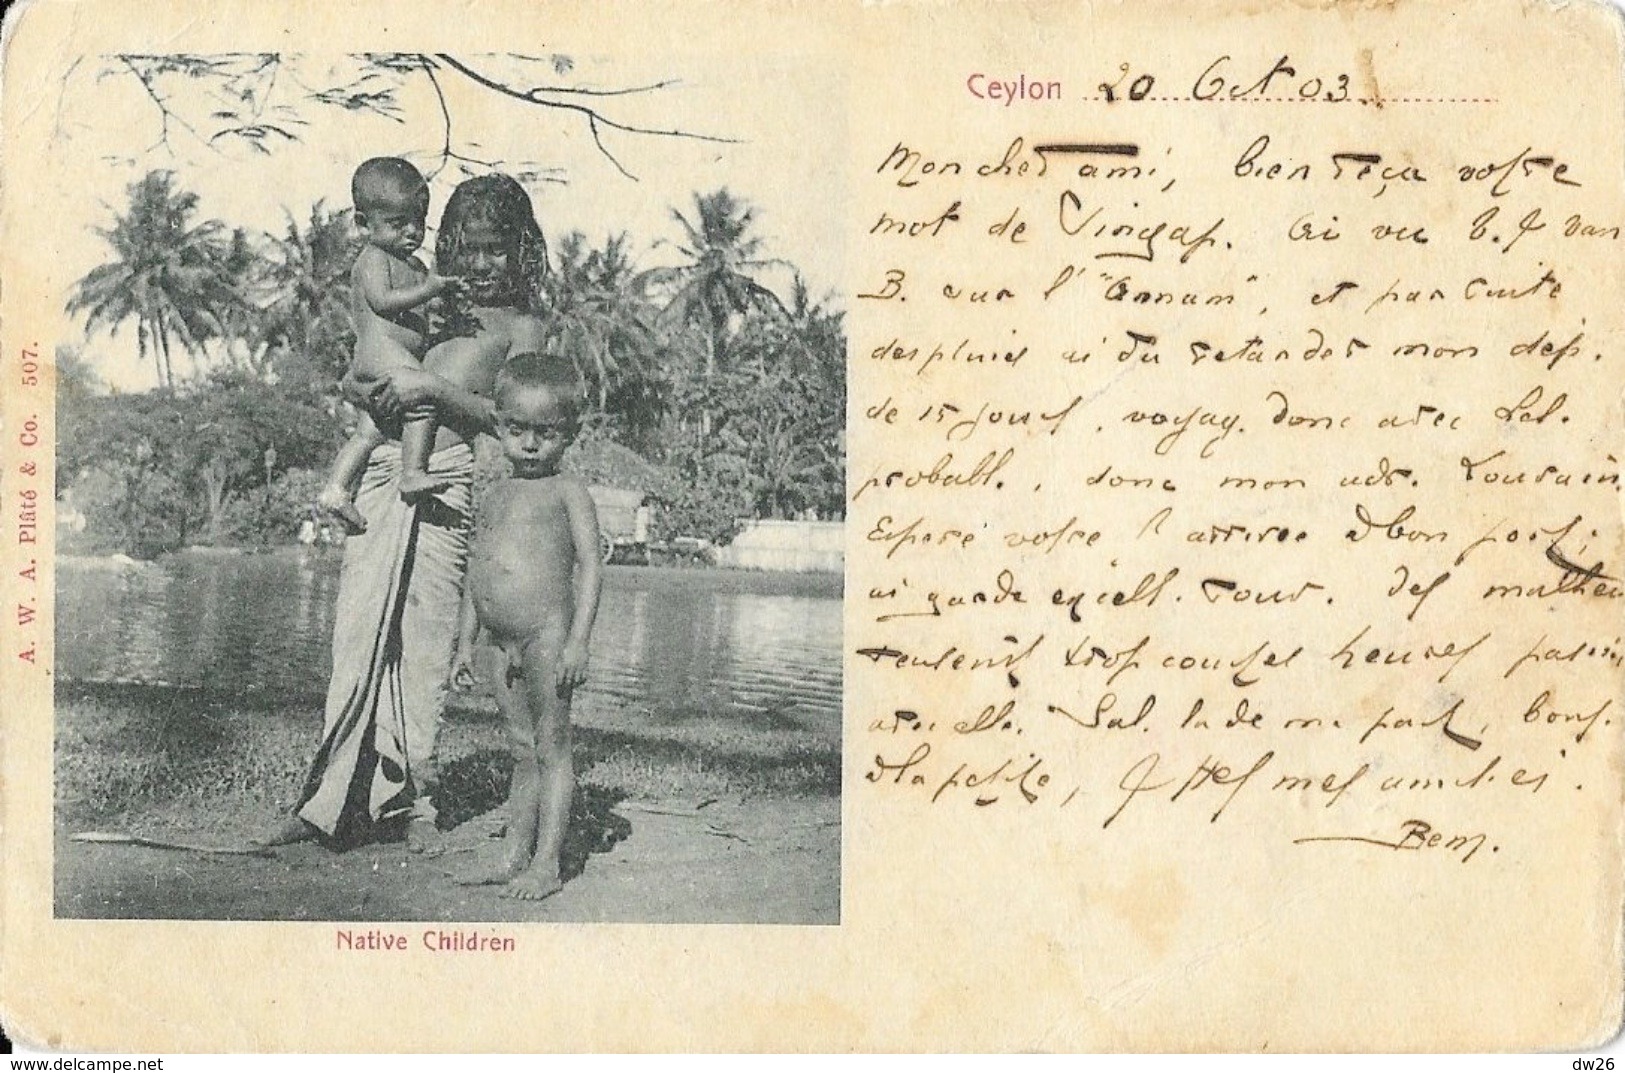 Ceylon 20 Oct 03.
Mon cher ami, bien reçu votre
mot de Singap. Ai vu V. d Van
B. sur l' "Annam", et par suite
des pluies ai du retarder mon dép.
de 15 jours. voyag. donc avec
probabl., donc mon adr. Louvain.
Espère votre arrivée à bon port;
ai garde excell. souv. des malheu
reusement trop courtes heures passées
avec elle. Sal. la de ma part, bons.
à la petite, & ttes mes amitiés.
A. W. A. Plâté & Co. 507.
Native Children
delcampe.net
dw26